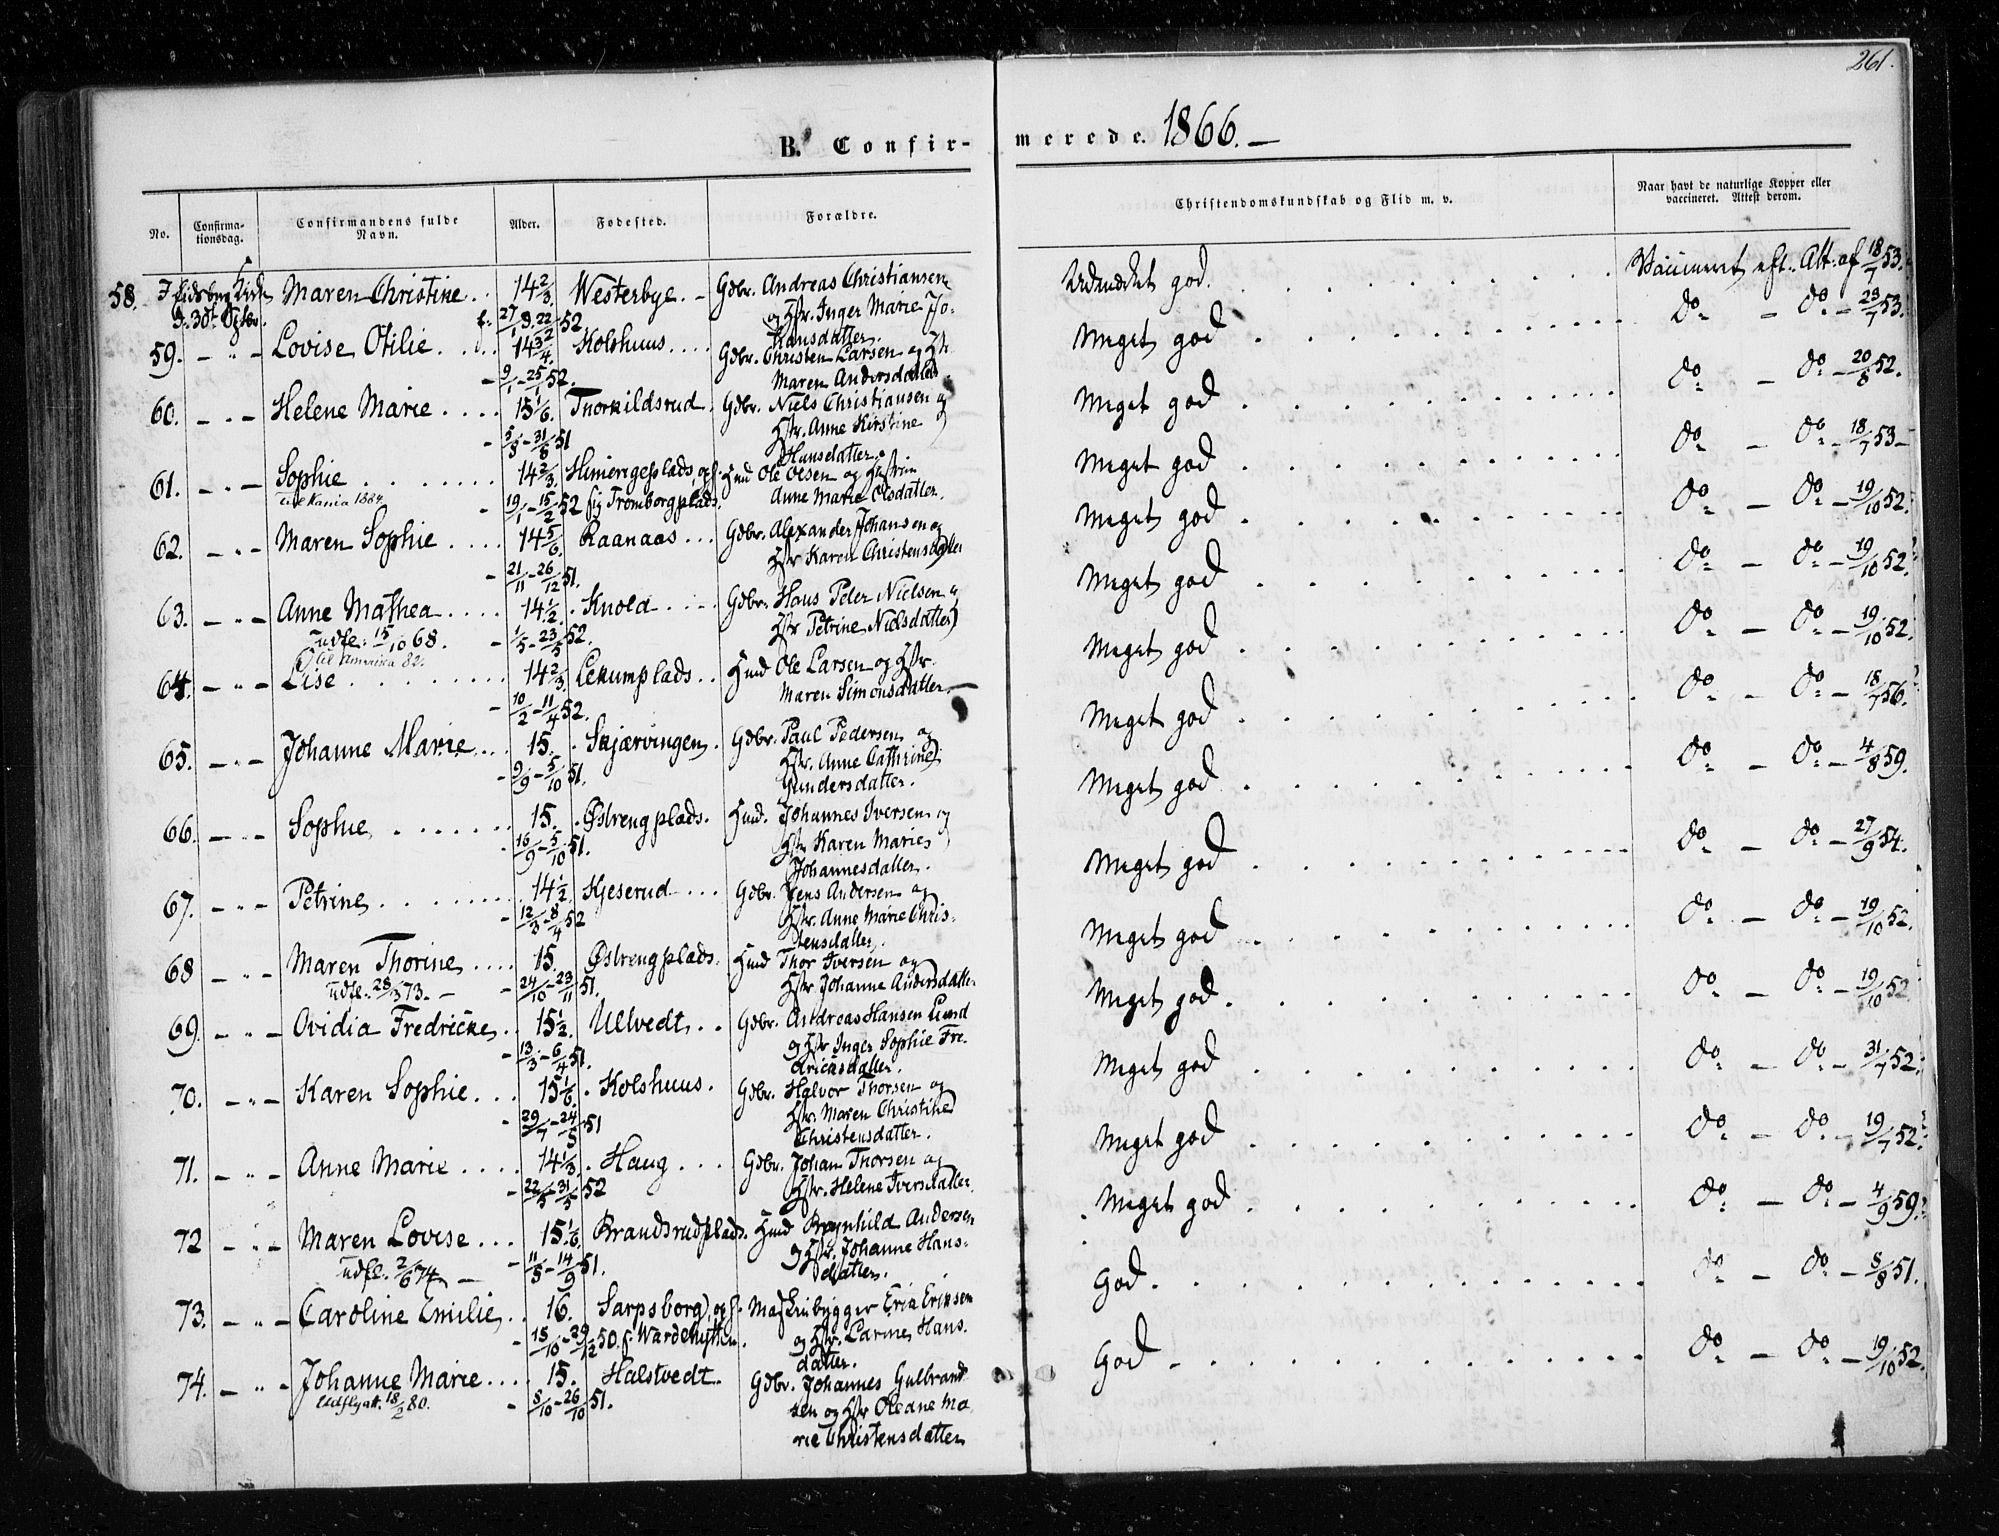 261.
B. Confir-
merede. 1866.—
No.
Confirma-
tionsdag.
Confirmandens fulde
Navn.
Alder.
Fødested.
Forældre.
Christendomskundskab og Flid m. v.
Naar havt de naturlige Kopper eller
vaccineret. Attest derom.
58. I Eidsberg Kirke Maren Christine . . 14 2/3. Westerbye. – Gdbr. Andreas Christiansen Udmærket god. Vaccineret eft. Att. af 18/7 53.
d. 30t Sptbr. f. 27/ 22/ 52 og Hstr. Inger Marie Jo-
hansdatter.
59. – " – Lovise Otilie. . . 14 3/4. Kolshuus. . . . Gdbr. Christen Larsen og Hstr. Meget god do – do – 23/7 53.
– 9/1 – 25/1 52. Maren Andersdatter.
60. – " – Helene Marie . . . . 15 1/6. Thorkildsrud. Gdbr. Niels Christiansen og Meget god do – do – 20/8 52.
– 5/8 – 31/8 51 Hstr. Anne Kirstine
Hansdatter.
61. – " – Sophie . . . . . . 14 2/3. plads, og f. Hmd Ole Olsen og Hustru Meget god do – do – 18/7 53 –
1884. – 19/1 – 15/2 52 sig Tromborgplads. Anne Marie Olsdatter.
62. – " – Maren Sophie . . . . 14 5/6. Raanaas . . . Gdbr. Alexander Johansen og Meget god do – do – 19/10 52.
– 21/11 – 26/12 51. Hstr Karen Christensdatter
63. – " – Anne Mathea . . . . 14 1/2. Knold . . . . Gdbr. Hans Peter Nielsen og Meget god do – do – 19/10 52.
Udfl: 15/10 68. – 1/5 – 23/5 52. Hstr Petrine Nielsdatter
til Amerika 82.
64. – " – Lise . . . . . . . 14 2/3. Lekumplads . . Hmd Ole Larsen og Hstr. Meget god do – do – 19/10 52.
– 10/2 – 11/4 52. Maren Simonsdatter. –
65. – " – Johanne Marie . . . 15. Skjærvingen. Gdbr. Paul Pedersen og Meget god do – do – 18/7 56.
– 9/9 – 5/10 51. Hstr. Anne Cathrine
Gundersdatter.
66. – " – Sophie . . . . . . 15. Østrengplads. Hmd. Johannes Iversen og Meget god do – do – 4/8 59.
16/9 – 5/10 51. Hstr Karen Marie
Johannesdatter.
67. – " – Petrine . . . . . . 14 1/2. Kjeserud . . . . Gdbr. Jens Andersen og Meget god do – do – 27/9 54.
– 12/3 – 8/4 52 Hstr. Anne Marie Chris-
tensdatter.
68 – " – Maren Thorine . . . . 15. Østrengplads. Hmd Thor Iversen og Meget god do – do – 19/10 52.
Udfl. 28/3 73. – – 24/10 – 23/11 51. Hstr Johanne Andersdatter
69. – " – Ovidia Fredricke . . 15 1/2. Ullvedt . . Gdbr. Andreas Hansen Lund Meget god. do – do – 19/10 52
– 13/3 – 6/4 51. og Hstr Inger Sophie Fre-
dricksdatter.
70. – " – Karen Sophie . . . 15 1/6. Kolshuus. Gdbr. Halvor Thorsen og Meget god do – do – 31/7 52.
– 29/7 – 24/8 51 Hstr. Maren Christine
Christensdatter.
71. – " – Anne Marie . . . . 14 1/3. Haug . . . Gdbr. Johan Thorsen og Meget god do – do – 19/7 52.
– 22/5 – 31/5 52 Hstr. Helene Iversdatter.
72 – " – Maren Lovise . . . 15 1/6. Brandsrudplads. Hmd Brynhild Andersen Meget god do – do – 4/9 59.
Udfl. 2/6 74 – – 11/8 – 14/9 51. og Hstr. Johanne Hans-
datter.
73. – " – Caroline Emilie . . 16. Sarpsborg, og f. Maskinbygger Erik Eriksen God. do – do – 8/8 51.
– 15/10 – 29/12 50. og Hstr. Hans-
datter.
74. – " – Johanne Marie . . . . 15. Halstvedt. Gdbr. Johannes Gulbrand God – do – do – 19/10 52.
Udflytt. 18/2 80. – 8/10 – 26/10 51. sen og Hstr Oleane Ma
rie Christensdatter